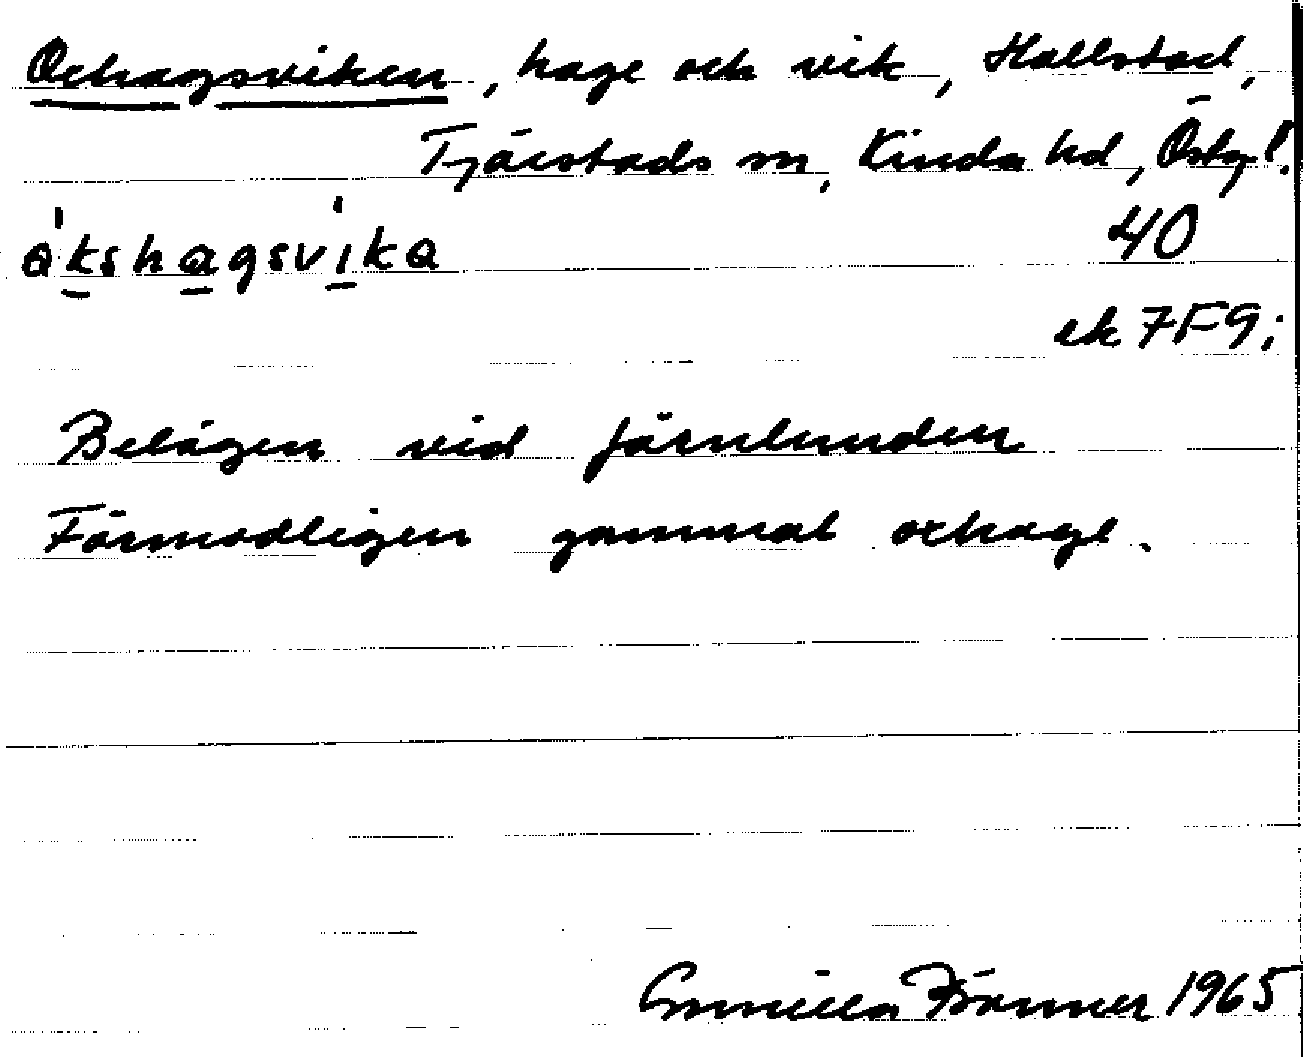 Oxhagsviken, hage och vik, Hallstad,
Tjärstads sn, Kinda hd, Östgl.
åkshagsvika 40
ek 7F9i
Belägen vid Järnlunden
Förmodligen gammal oxhage.
Gunilla 1965